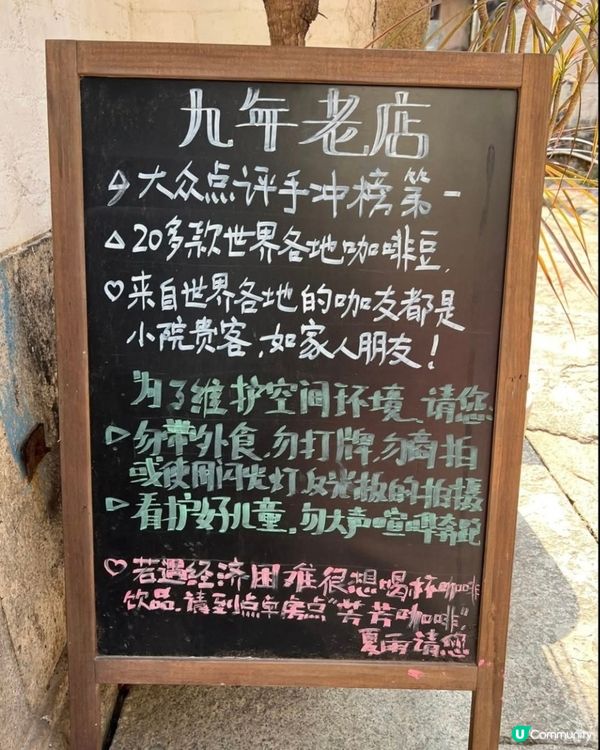 九年老店
大众点评手冲榜第一
20多款世界各地咖啡豆,
来自世界各地的咖友都是
小院贵客,如家人朋友!
为了维护空间环境,请您
勿带外食,勿打牌,勿商拍
或使用闪光灯反光板的拍摄
看护好儿童,勿大声喧哗奔跑
若遇经济困难很想喝杯咖啡
饮品,请到点单房点"芳芳咖啡",
夏雨请您
U Community